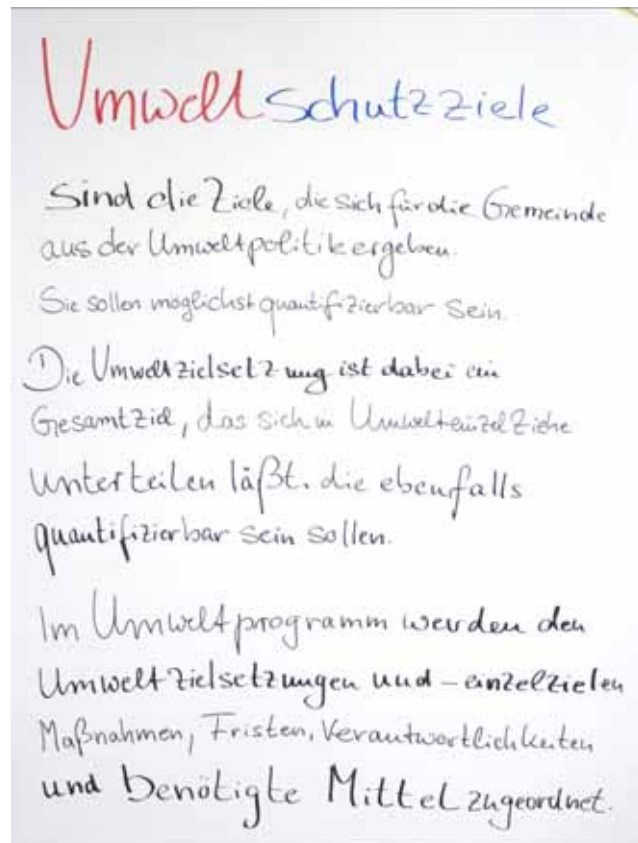 Umweltschutzziele
Sind die Ziele, die sich für die Gemeinde
aus der Umweltpolitik ergeben.
Sie sollen möglichst quantifizierbar sein.
Die Umweltzielsetzung ist dabei ein
Gesamtziel, das sich in Umwelteinzelziele
unterteilen läßt, die ebenfalls
quantifizierbar sein sollen.
Im Umweltprogramm werden den
Umweltzielsetzungen und -einzelzielen
Maßnahmen, Fristen, Verantwortlichkeiten
und benötigte Mittel zugeordnet.